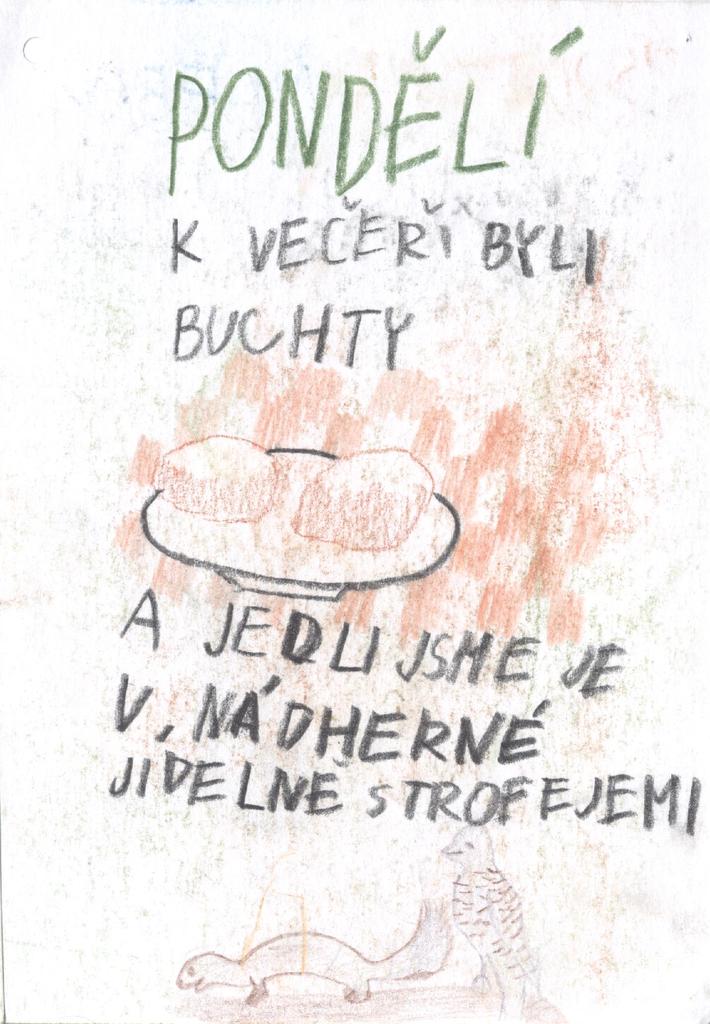 PONDĚLÍ
K VEČEŘI BYLI
BUCHTY
A JEDLI JSME JE
V, NÁDHERNÉ
JIDELNE S TROFEJEMI